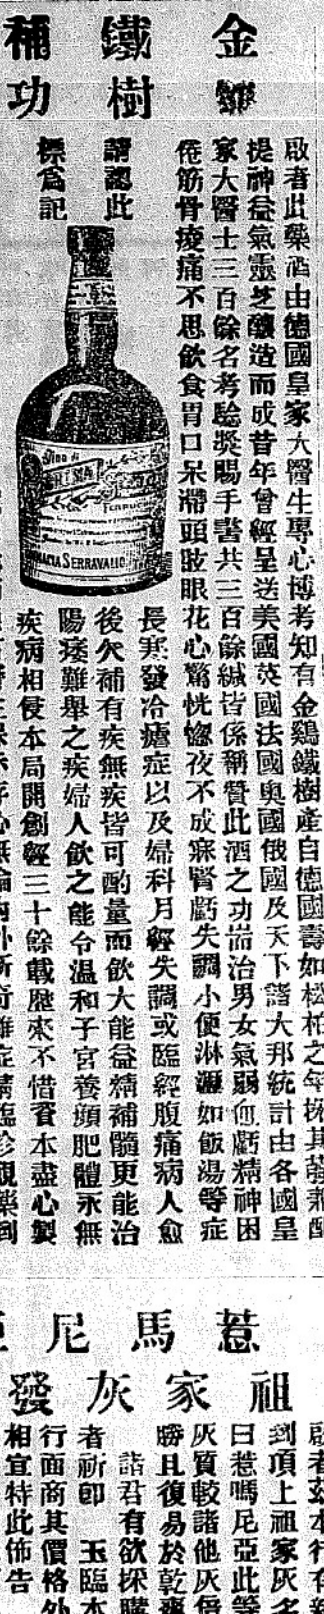 金鷄
鐵樹
補功
啟者此藥酒由德國皇家大醫生專心博考知有金鷄鐵樹產自德國壽如松柏之年
提神益氣靈芝釀造而成昔年曾經呈送美國英國法國奧國俄國及天下諸大邦統計由各國皇
家大醫士三百餘名考驗獎賜手書共三百餘緘皆係稱贊此酒之功耑治男女氣弱血虧精神困
倦筋骨痠痛不思飲食胃口呆滯頭眩眼花心驚恍惚夜不成寐腎虧失調小便淋漓如飯湯等症
請認此
標為記
FERRUG
SERRAVALLO
長寒發冷瘧症以及婦科月經失調或臨經腹痛病人愈
後欠補有疾無疾皆可酌量而飲大能益精補髓更能治
陽痿難舉之疾婦人飲之能令溫和子宮養顏肥體永無
疾病相侵本局開創經三十餘載歷來不惜資本盡心製
惹馬尼
祖家灰發
啟者茲本行有
到頂上祖家灰名
曰惹嗎尼亞此等
灰質較諸他灰
勝且復易於乾
諸君有欲採購
者祈卽 玉臨本
行面商其價格外
相宜特此佈告